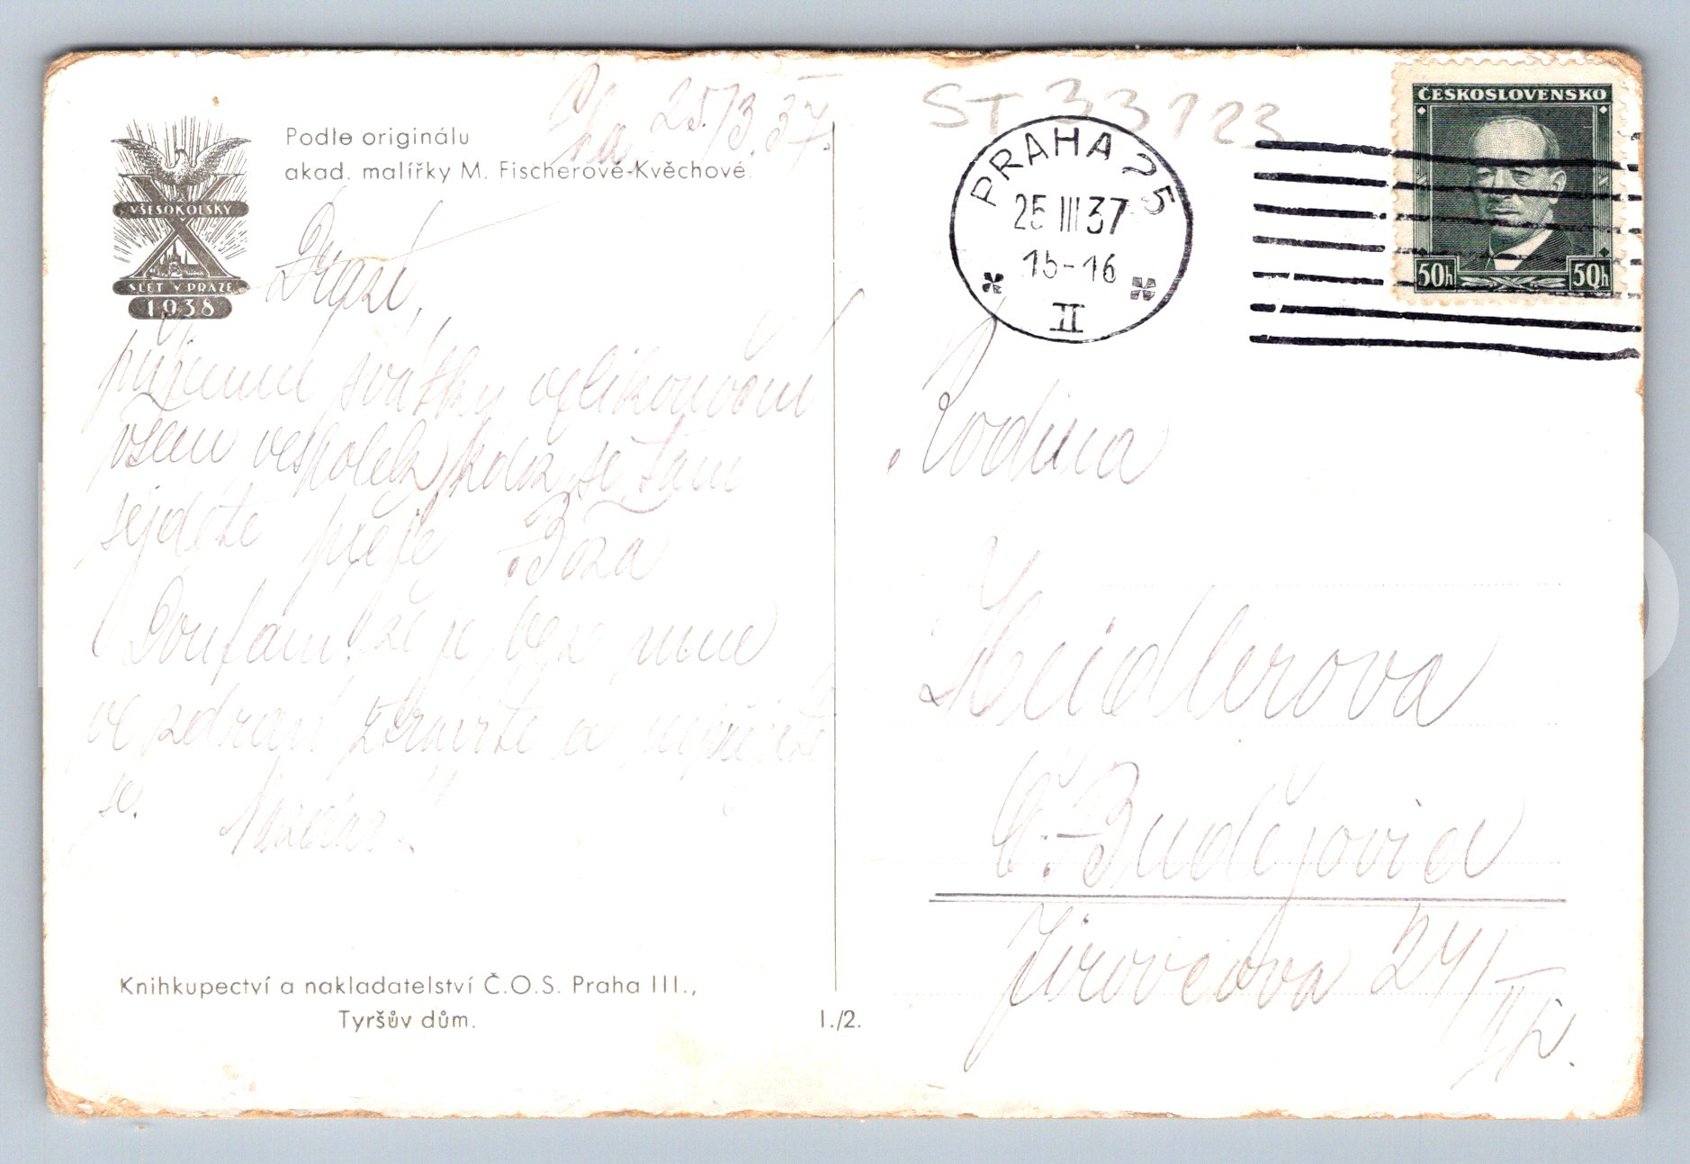 Pha 25/3.37.
ST 33123
ČESKOSLOVENSKO
50h 50h
PRAHA 25
25 III 37
15-16
II
Podle originálu
akad. malířky M. Fischerové-Kvěchové.
VŠESOKOLSKÝ
X
SLET V PRAZE
1938
Drazí,
příjemné svátky velikonoční
všem vespolek, kdož se tam
sejdete přeje Boža
Doufám, že je beze mne
ve zdraví ztrávíte a
se. Nazdar.
Rodina
Heidlerova
Č. Budějovice
Jírovcova 24/II p.
Knihkupectví a nakladatelství Č.O.S. Praha III.,
Tyršův dům.
I./2.